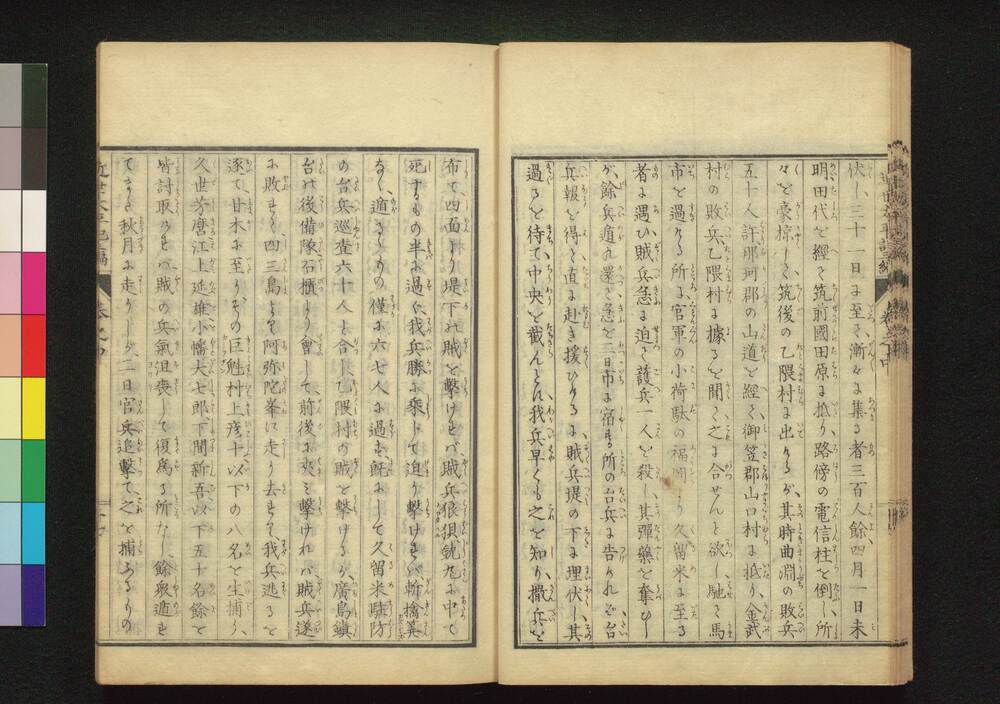 伏し、三十一日に至て、漸々に集る者三百人餘四月一日未
明田代を經て筑前國田原に抵り、路傍の電信柱を倒し、所
々を豪掠して、筑後の乙隈村に出けるが、其時曲淵の敗兵
五十人許那珂郡の山道を經て、御笠郡山口村に抵り、金武
村の敗兵、乙隈村に據るを聞く、之に合せんと欲し、馳て馬
市を過ける所に、官軍の小荷駄の福岡より久留米に至る
者に遇ひ賊兵急に迫て護兵一人を殺し、其彈藥を奪ひし
が、餘兵遁れ還て急を二日市に宿する所の台兵に告けれど、台
兵報を得て直に赴き援ひけるに、賊兵堤の下に埋伏し、其
過るを待て中央を截んとす、我兵早くも之を知り、撒兵を
布て、四面より堤下の賊を擊ければ、賊兵狼狽銃丸に中て
死するもの半に過ぐ、我兵勝に乘じて迫り擊ければ、斬擒算
なく、遁るもの僅に六七人に過ず、既にして久留米駐防
の台兵巡査六十人と合し、乙隈村の賊を擊けるが、廣島鎭
台の後備隊石櫃より會して、前後に夾み擊ければ賊兵遂
に敗れ、四三島より阿弥陀峯に走り去る、我兵逃るを
逐て、甘木に至り、その巨魁村上彦十以下の八名を生捕り、
久世芳麿江上延雄小幡大七郎、下間新吾以下五十名餘を
皆討取ければ、賊の兵氣沮喪して復爲る所なし、餘衆遁れ
て秋月に走りしが、二日官兵追擊て、之を捕ふるもの